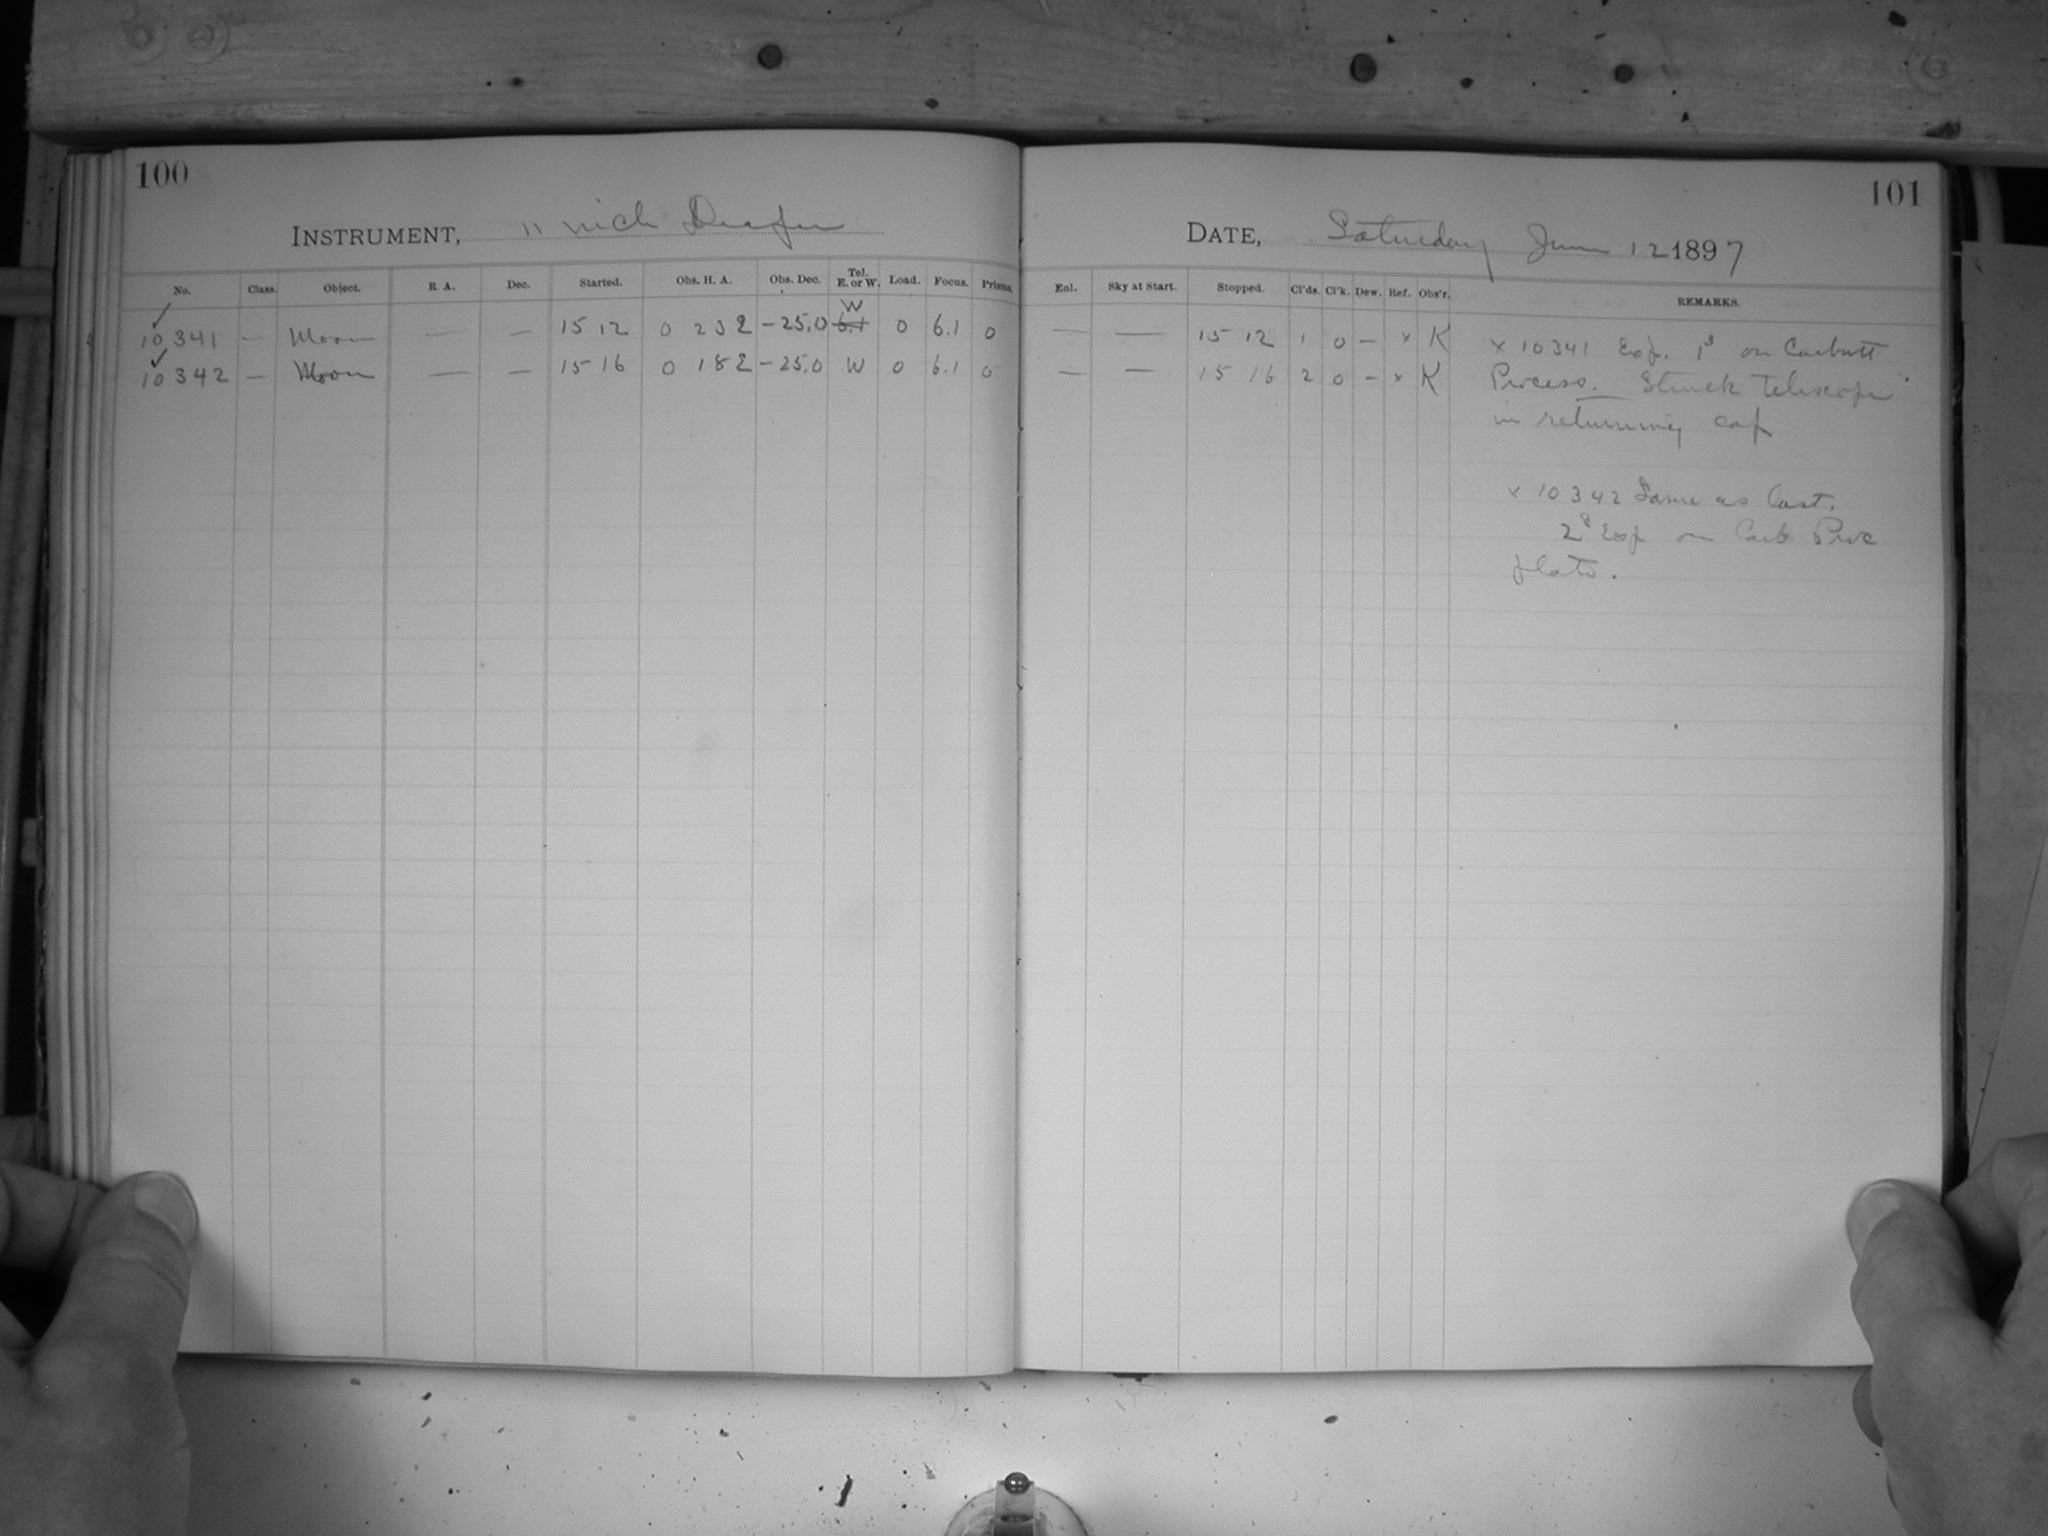 100
INSTRUMENT, 11 inch Draper
No. Class. Object. R. A. Dec. Started. Obs. H. A. Obs. Dec. Tel. E. or W. Load. Focus. Prisms.
W
10 341 — Moon — — 15 12 0 23 2 -25.0 6.1 0 6.1 0
10 342 — Moon — — 15 16 0 18 2 -25.0 W 0 6.1 0
101
DATE, Saturday June 12 1897
Eol. Sky at Start. Stopped. Cl'ds. Cl'k. Dew. Ref. Obs'r. REMARKS.
— — 15 12 1 0 — x K x 10341 Exp. 1s on Carbutt
— — 15 16 2 0 — x K Process. Struck telescope
in returning cap
x 10342 Same as last.
2s Exp on Carb Proc
plate.